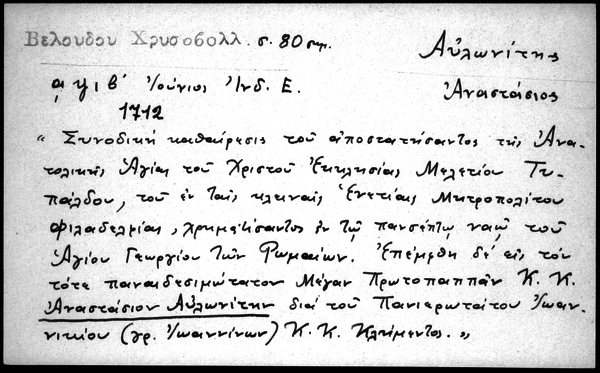 Βελούδου Χρυσοβολλ. σ. 80 σημ.
Αὐλωνίτης
Ἀναστάσιος
͵αψιβ´ Ἰούνιος Ἰνδ. Ε.
1712
« Συνοδική καθαίρεσις τοῦ ἀποστατήσαντος τῆς Ἀνα-
τολικῆς Ἁγίας τοῦ Χριστοῦ Ἐκκλησίας Μελετίου Τυ-
πάλδου, τοῦ ἐν ταῖς κλειναῖς Ἐνετίαις Μητροπολίτου
Φιλαδελφίας, χρηματίσαντος ἐν τῷ πανσέπτῳ ναῷ τοῦ
Ἁγίου Γεωργίου τῶν Ρωμαίων. Ἐπέμφθη δέ εἰς τόν
τότε παναιδεσιμώτατον Μέγαν Πρωτοπαππᾶν Κ. Κ.
Ἀναστάσιον Αὐλωνίτην διά τοῦ Πανιερωτάτου Ἰωαν-
νικίου (γρ. Ἰωαννίνων) Κ. Κ. Κλήμεντος. »